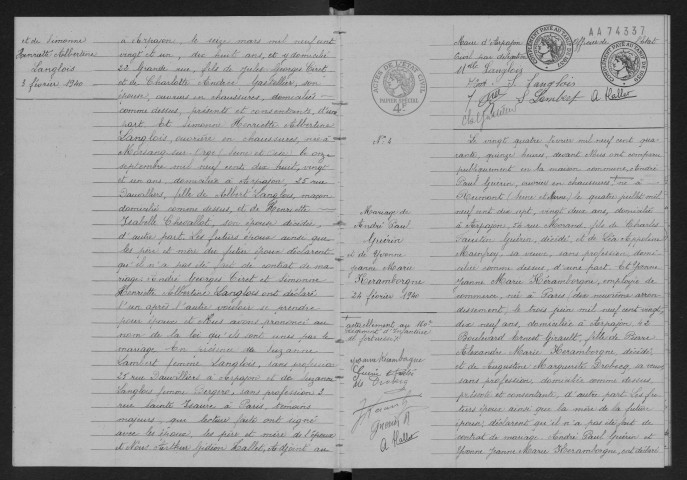 et de Simonne
Henriette Albertine
Langlois
3 février 1940
à Arpajon, le seize mars mil neuf cent
vingt et un, dix huit ans, et y domicilié
22 Grande rue, fils de Jules Georges Ciret
et de Charlotte Andrée Gastellier, son
épouse, ouvriers en chaussures, domiciliés
comme dessus, présents et consentants, d'une
part. Et Simonne Henriette Albertine
Langlois, ouvrière en chaussures, née à
Morsang sur Orge (Seine et Oise) le onze
septembre mil neuf cent dix huit, vingt
et un ans, domiciliée à Arpajon, 25 rue
Dauvilliers, fille de Albert Langlois, maçon
domicilié comme dessus, et de Henriette
Isabelle Chevallot, son épouse décédée,
d'autre part. Les futurs époux ainsi que
les père et mère du futur époux déclarent
qu'il n'a pas été fait de contrat de ma
riage. André Georges Ciret et Simonne
Henriette Albertine Langlois ont déclaré
l'un après l'autre vouloir se prendre
pour époux et Nous avons prononcé au
nom de la loi qu'ils sont unis par le
mariage. En présence de Suzanne
Lambert femme Langlois, sans profession
25 rue Dauvilliers à Arpajon et de Suzanne
Langlois femme, sans profession 2
rue Sainte Isaure à Paris, témoins
majeurs, qui lecture faite ont signé
avec les époux, les père et mère de l'époux
et Nous Arthur Gédéon Hallot, Adjoint au
Maire d'Arpajon Officier de l'état
Civil par délégation
S. Langlois
S Lambert
A Hallot
AA74337
ACTES DE L'ETAT CIVIL
PAPIER SPECIAL
4F
N° 4
Mariage de
André Paul
Guérin
et de Yvonne
Jeanne Marie
Keramborgne
24 février 1940
actuellement au
Régiment d'Infanterie
Guérin
Drobecq
Guérin A
A Hallot
Le vingt quatre février mil neuf cent qua
rante, quinze heures, devant Nous ont comparu
publiquement en la maison commune, André
Paul Guérin, ouvrier en chaussures, né à
le quatre juillet mil
neuf cent dix sept, vingt deux ans, domicilié
à Arpajon, 74 rue Morand, fils de Charles
Guérin, décédé, et de
Mainfroy, sa veuve, sans profession, domi
ciliée comme dessus, d'une part. Et Yvonne
Jeanne Marie Keramborgne, employée de
commerce, née à Paris (dix neuvième arron
dissement), le trois juin mil neuf cent vingt,
dix neuf ans, domiciliée à Arpajon, 42
Boulevard Ernest Girault, fille de Pierre
Alexandre Marie Keramborgne, décédé,
et de Augustine Marguerite Drobecq, sa veuve,
sans profession, domiciliée comme dessus,
présente et consentante, d'autre part. Les fu
turs époux ainsi que la mère de la future
épouse, déclarent qu'il n'a pas été fait de
contrat de mariage. André Paul Guérin et
Yvonne Jeanne Marie Keramborgne, ont déclaré